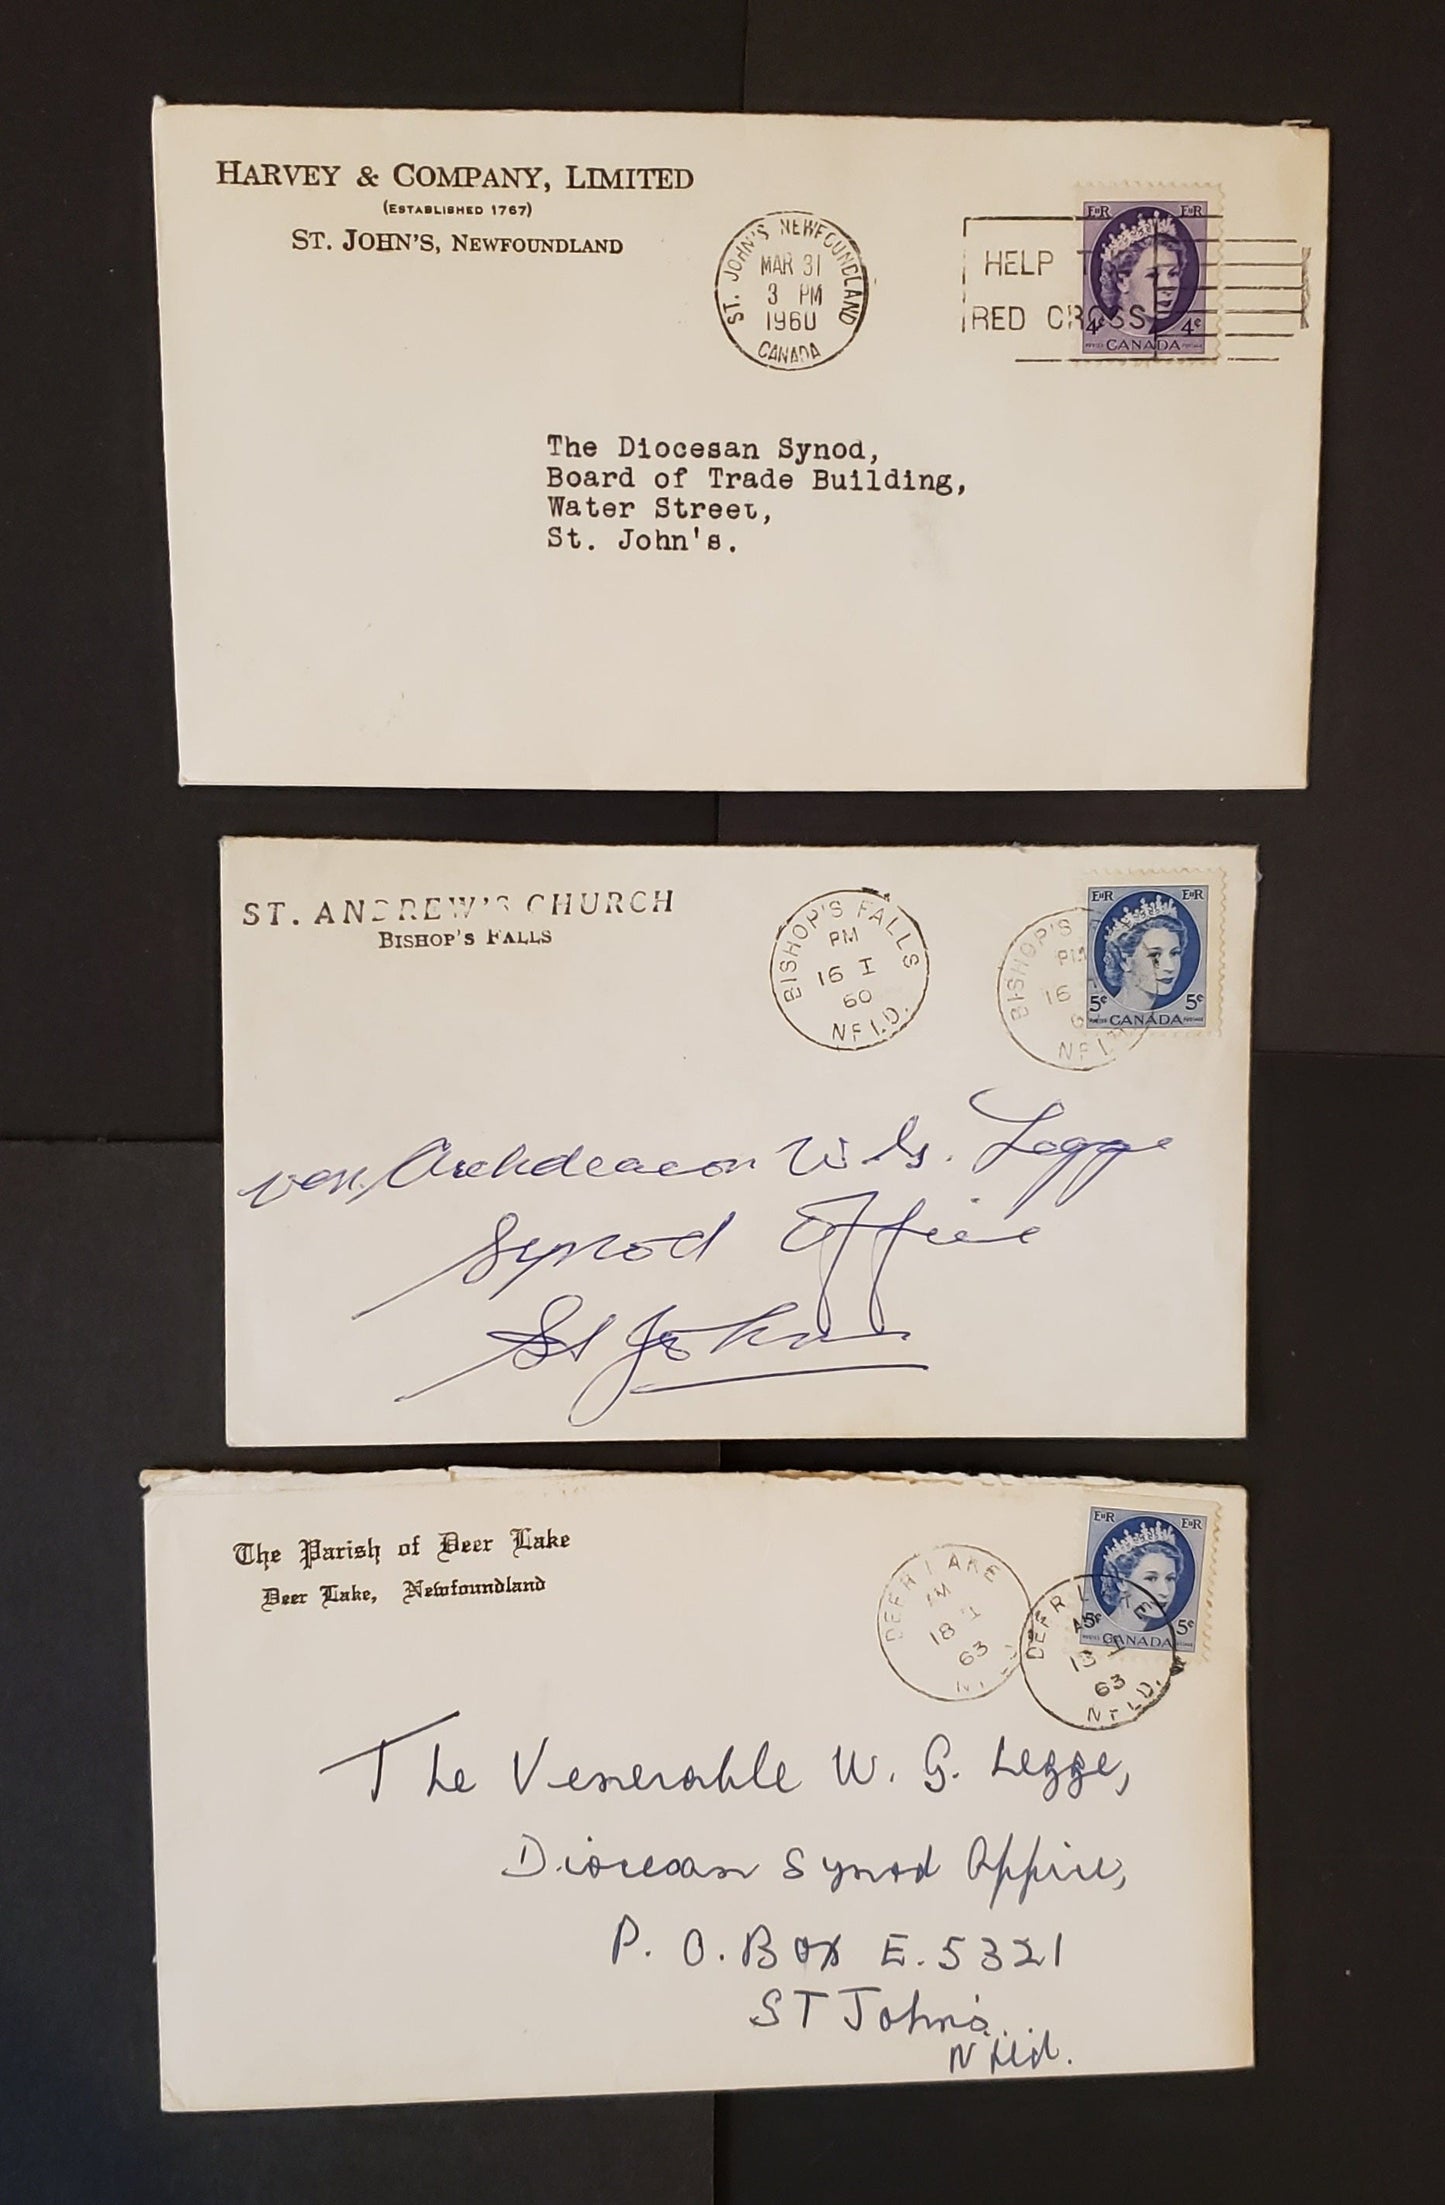 HARVEY & COMPANY, LIMITED
(ESTABLISHED 1767)
ST. JOHN'S, NEWFOUNDLAND
ST. JOHN'S NEWFOUNDLAND
MAR 31
3 PM
1960
CANADA
HELP
RED CROSS
EIIR EIIR
4¢ 4¢
POSTES CANADA POSTAGE
The Diocesan Synod,
Board of Trade Building,
Water Street,
St. John's.
ST. ANDREW'S CHURCH
BISHOP'S FALLS
BISHOP'S FALLS
PM
16 I
60
NFLD.
BISHOP'S
PM
16
NFL
EIIR EIIR
5¢ 5¢
POSTES CANADA POSTAGE
Ven. Archdeacon W. G. Legge
Synod Office
St Johns
The Parish of Deer Lake
Deer Lake, Newfoundland
DEER LAKE
18 I
63
DEER LAKE
63
NFLD.
EIIR EIIR
5¢ 5¢
POSTES CANADA POSTAGE
The Venerable W. G. Legge,
Diocesan Synod Office,
P. O. Box E. 5321
ST John's.
Nfld.